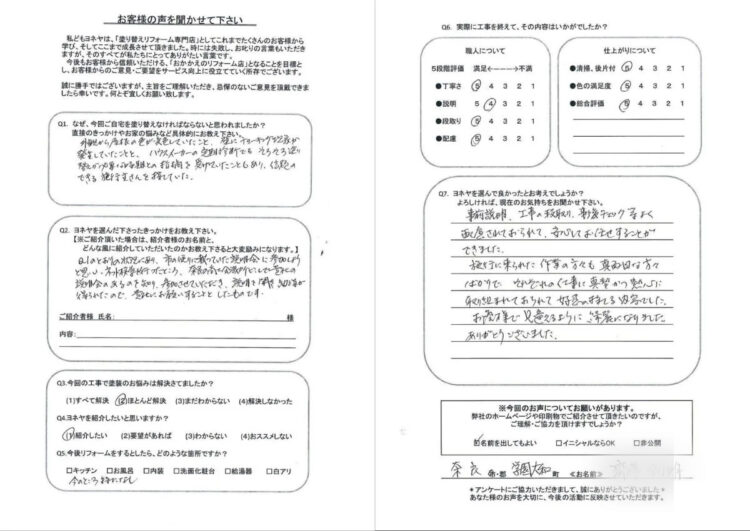 お客様の声を聞かせて下さい
私どもヨネヤは、「塗り替えリフォーム専門店」としてこれまでたくさんのお客様から
学び、そしてここまで成長させて頂きました。時には失敗し、お叱りの言葉もいただき
ますが、そのすべてが私たちにとってありがたい言葉です。
今後もお客様から信頼いただける、「おかかえのリフォーム店」となることを目標と
し、お客様からのご意見・ご要望をサービス向上に役立てていく所存でございます。
誠に勝手ではございますが、主旨をご理解いただき、忌憚のないご意見を頂戴できま
したら幸いです。何とぞ宜しくお願い致します。
Q1. なぜ、今回ご自宅を塗り替えなければならないと思われましたか?
直接のきっかけやお家の悩みなど具体的にお教え下さい。
外観から屋根の色が変色していたこと、壁にチョーキング現象が
発生していたことと、ハウスメーカーの定期診断でもそろそろ塗り
との指摘を受けていたこともあり、信頼の
できる施行業さんを探していた。
Q2. ヨネヤを選んだ下さったきっかけをお教え下さい。
【※ご紹介頂いた場合は、紹介者様のお名前と、
どんな風に紹介していただいたのかお教え下さると大変励みになります。】
Q1のとおりの状況にあり、市の便りに載っていた説明会に参加しよう
と思い、ネット検索を行ったところ、
説明会のあるのを知り、参加させていただき、説明を聞き
得られたので、貴社にお願いすることとしたものです。
ご紹介者様 氏名: 様
内容:
Q3.今回の工事で塗装のお悩みは解決さてましたか?
(1)すべて解決 (2)ほとんど解決 (3)まだわからない (4)解決しなかった
Q4.ヨネヤを紹介したいと思いますか?
(1)紹介したい (2)要望があれば (3)わからない (4)おススメしない
Q5.今後リフォームをするとしたら、どのような箇所ですか?
□キッチン □お風呂 □内装 □洗面化粧台 □給湯器 □白アリ
今のところ特になし
Q6. 実際に工事を終えて、その内容はいかがでしたか?
職人について
5段階評価 満足←----→不満
●丁寧さ 5 4 3 2 1
●説明 5 4 3 2 1
●段取り 5 4 3 2 1
●配慮 5 4 3 2 1
仕上がりについて
●清掃、後片付 5 4 3 2 1
●色の満足度 5 4 3 2 1
●総合評価 5 4 3 2 1
Q7. ヨネヤを選んで良かったとお考えでしょうか?
よろしければ、現在のお気持ちをお聞かせ下さい。
事前説明、工事の段取り、事後チェック等よく
配慮されておられて、安心してお任せすることが
できました。
施行に来られた作業の方々も真面目な方々
ばかりで、それぞれの仕事に真摯かつ
取り組まれておられて好感の持てる内容でした。
お蔭様で見違えるように綺麗になりました。
ありがとうございました。
※今回のお声についてお願いがあります。
弊社のホームページや印刷物でご紹介させて頂きたいのですが、
ご理解・ご協力を頂けますでしょうか?
☑名前を出してもよい □イニシャルならOK □非公開
奈良 市・郡 学園大和 町 《お名前》
*アンケートにご協力いただきまして、誠にありがとうございました*
あなた様のお声を大切に、今後の活動に反映させていただきます。